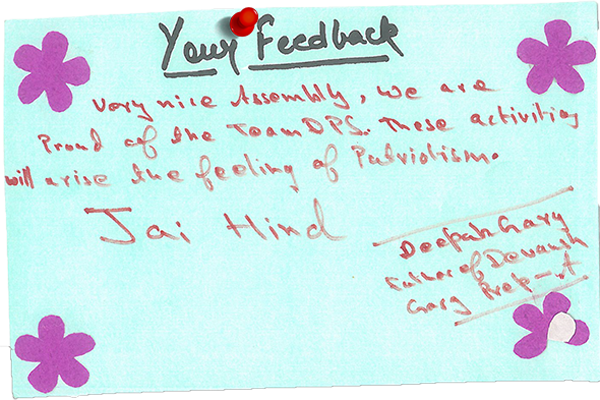 Your Feedback
Very nice Assembly, we are
Proud of the Team DPS. These activities
will arise the feeling of Patriotism.
Jai Hind
Deepak Garg
Father of Devansh
Garg Prep-A